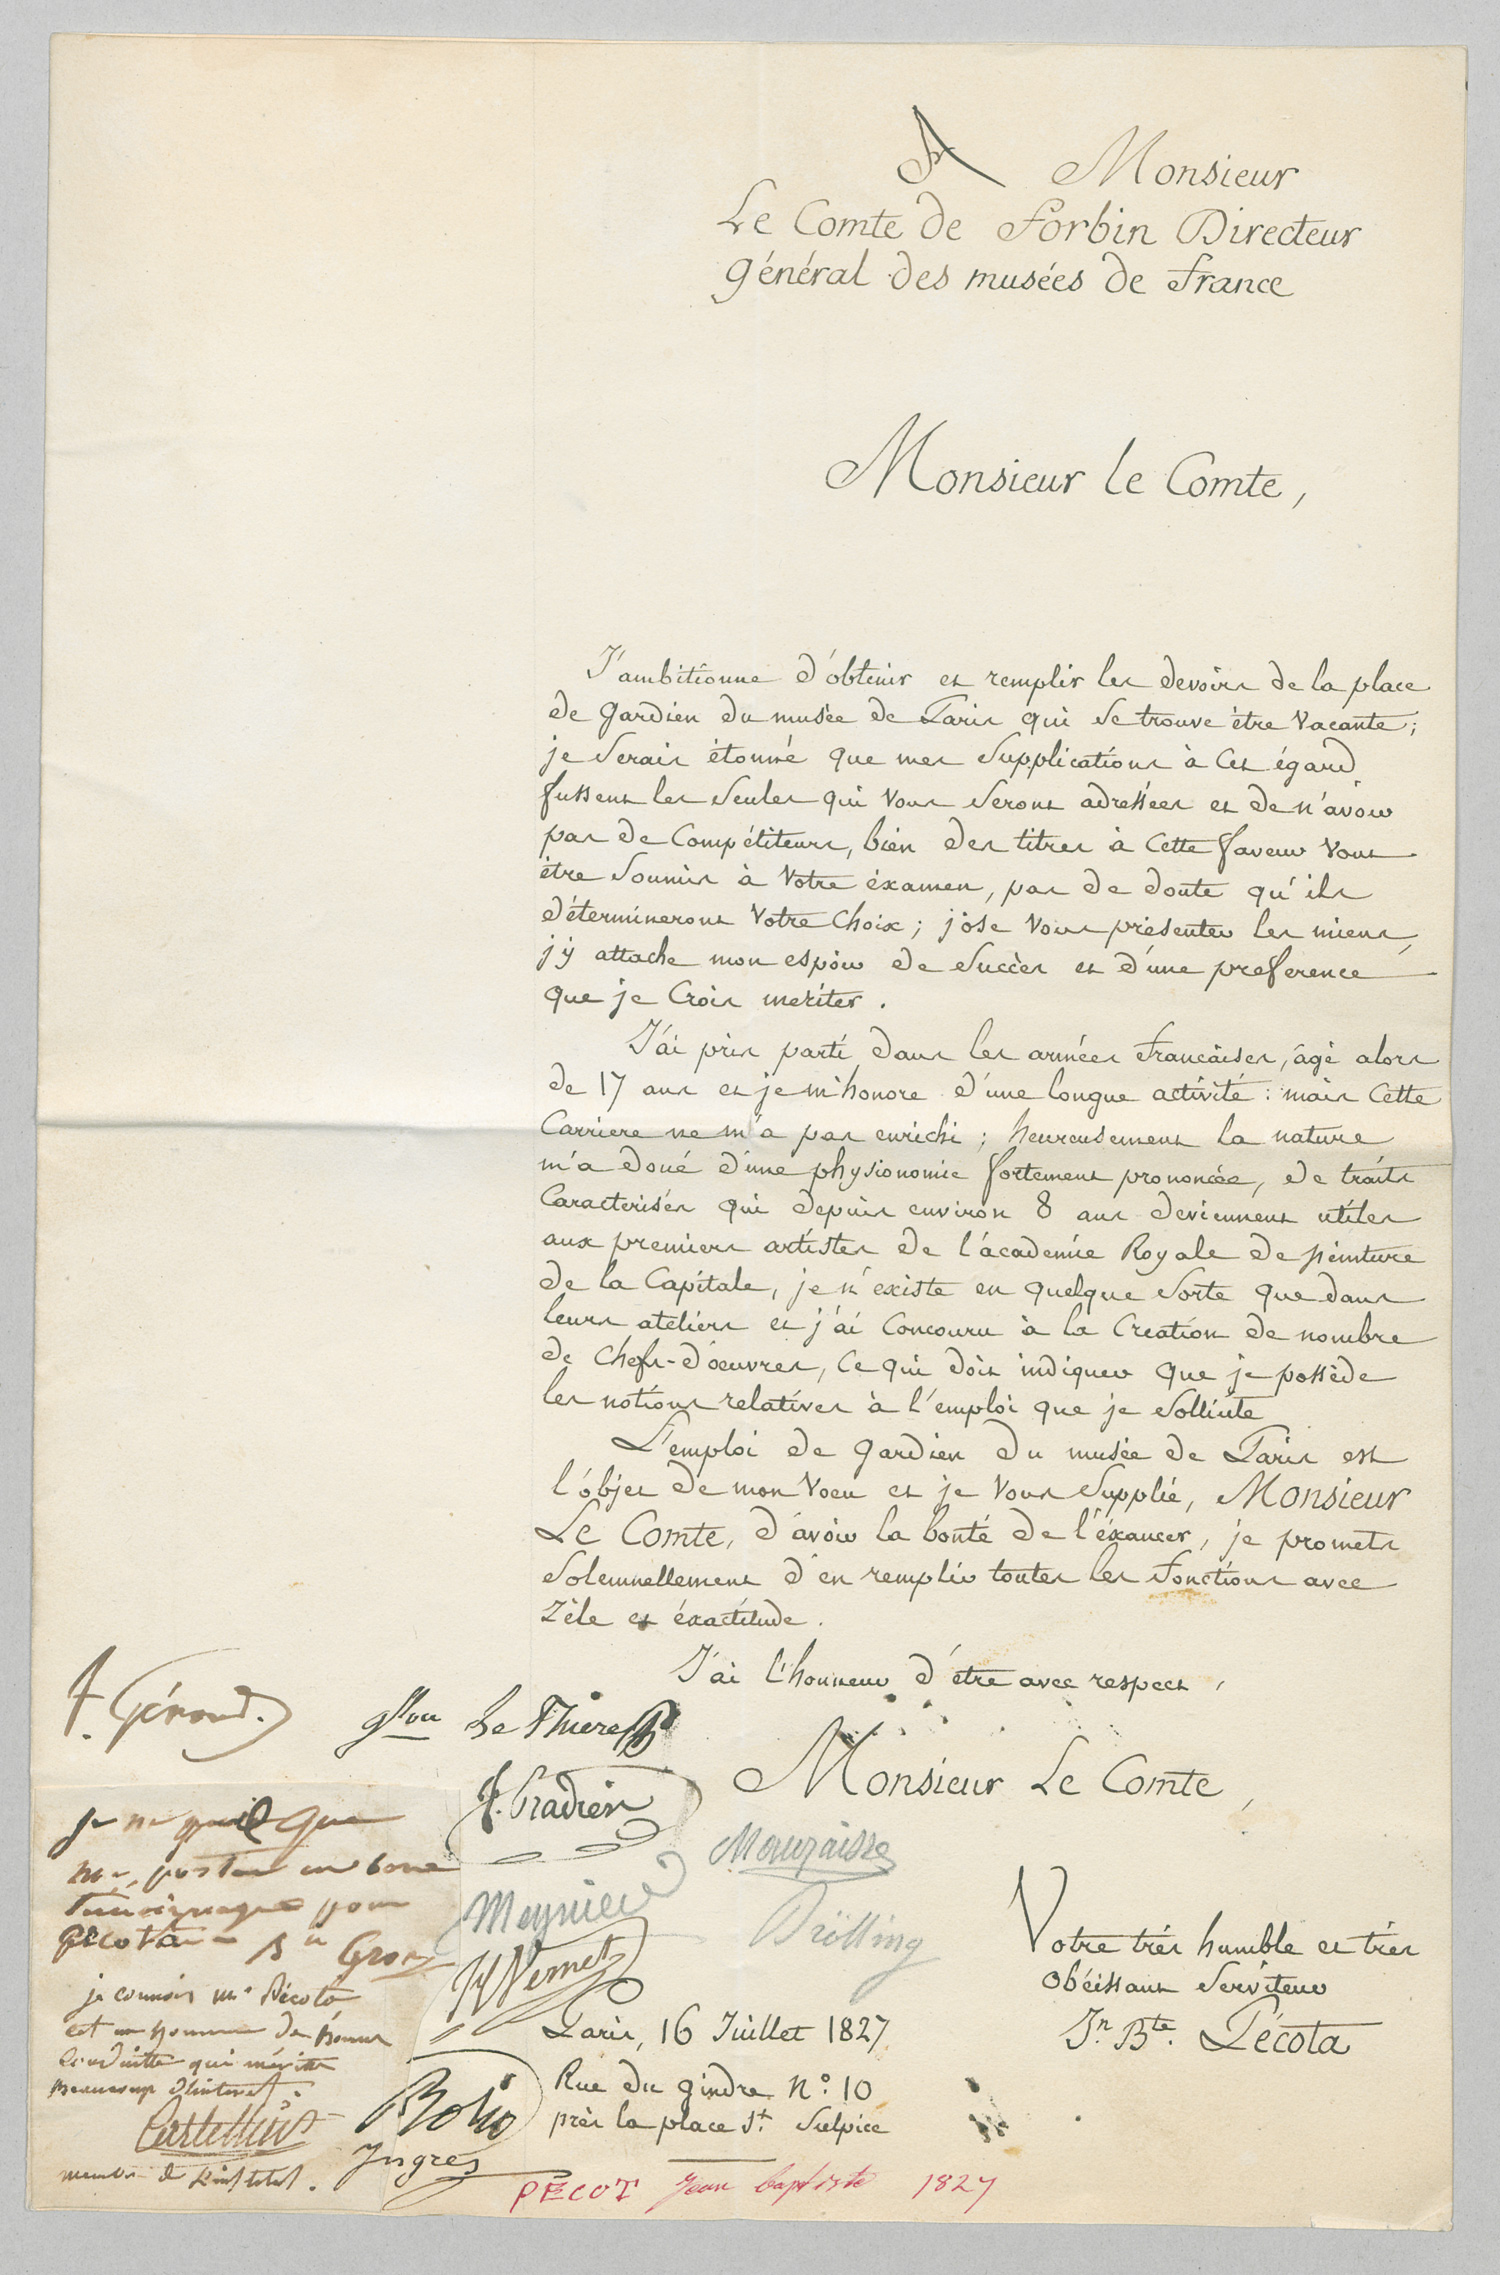 A Monsieur
Le Comte de Forbin Directeur
général des musées de France
Monsieur le Comte,
J'ambitionne d'obtenir et remplir les devoirs de la place
de gardien du musée de Paris qui se trouve être vacante ;
je serais étonné que mes supplications à cet égard
fussent les seules qui vous seront adressées et de n'avoir
pas de compétiteurs, bien des titres à cette faveur vont
être soumis à votre éxamen, pas de doute qu'ils
détermineront votre choix ; j'ose vous présenter les miens,
j'y attache mon espoir de succès et d'une preference
que je crois meriter .
J'ai pris parti dans les armées francaises, âgé alors
de 17 ans et je m'honore d'une longue activité : mais cette
carriere ne m'a pas enrichi ; heureusement la nature
m'a doué d'une physionomie fortement prononcée, de traits
caracterisés qui depuis environ 8 ans deviennent utiles
aux premiers artistes de l'académie Royale de peinture
de la Capitale, je n'existe en quelque sorte que dans
leurs ateliers et j'ai concouru à la creation de nombre
de chefs-d'oeuvres, ce qui doit indiquer que je possède
les notions relatives à l'emploi que je sollicite
L'emploi de gardien du musée de Paris est
l'objet de mon voeu et je vous supplie, Monsieur
Le Comte, d'avoir la bonté de l'éxaucer, je promets
solemnellement d'en remplir toutes les fonctions avec
zèle et éxactitude .
J'ai l'honneur d'être avec respect ,
Monsieur Le Comte,
Votre très humble et très
obéissant serviteur
Jn Bte. Pécota
Paris, 16 Juillet 1827
Rue du gindre N.º 10
près la place St. Sulpice
F. Gérard.
gllon Le Thiere
J. Pradier
Mauzaisse
Meynier
Drölling
H Vernet
Bosio
Ingres
je ne puis que
porter un bon
témoignage pour
Pécota Bn Gros
je connois mr Pécota
est un homme de bonne
conduitte qui mérite
beaucoup d'interet.
Castellan
membre de l'institut.
PÉCOT Jean baptiste 1827